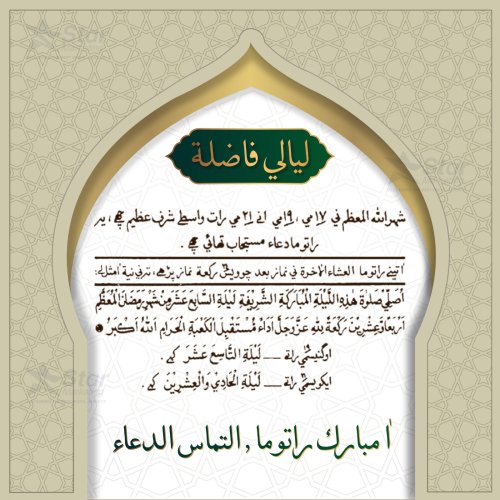 ليالي فاضلة
شهر الله المعظم ني ١٧مي ، ١٩مي انے ٢١مي رات واسطے شرف عظيم چھے ، يہ
راتو ما دعاء مستجاب تھائي چھے .
اتينے راتو ما العشاء الآخرة ني نماز بعد چوويس ركعة نماز پرهے، تہني نية امثل اہے:
أُصَلِّي صَلٰوةَ هٰذِهِ اللَّيْلَةِ الْمُبَارَكَةِ الشَّرِيْفَةِ لَيْلَةِ السَّابِعَ عَشَرَ مِنْ شَهْرِ رَمَضَانَ الْمُعَظَّمِ
أَرْبَعًا وَّعِشْرِيْنَ رَكْعَةً لِلّٰهِ عَزَّ وَجَلَّ أَدَاءً مُسْتَقْبِلَ الْكَعْبَةِ الْحَرَامِ اَللّٰهُ أَكْبَرُ
اوگنيسمي رات ــــ لَيْلَةِ التَّاسِعَ عَشَرَ كہے .
ايكويسمي رات ــــ لَيْلَةِ الْحَادِيْ وَالْعِشْرِيْنَ كہے .
أ مبارك راتوما , التماس الدعاء